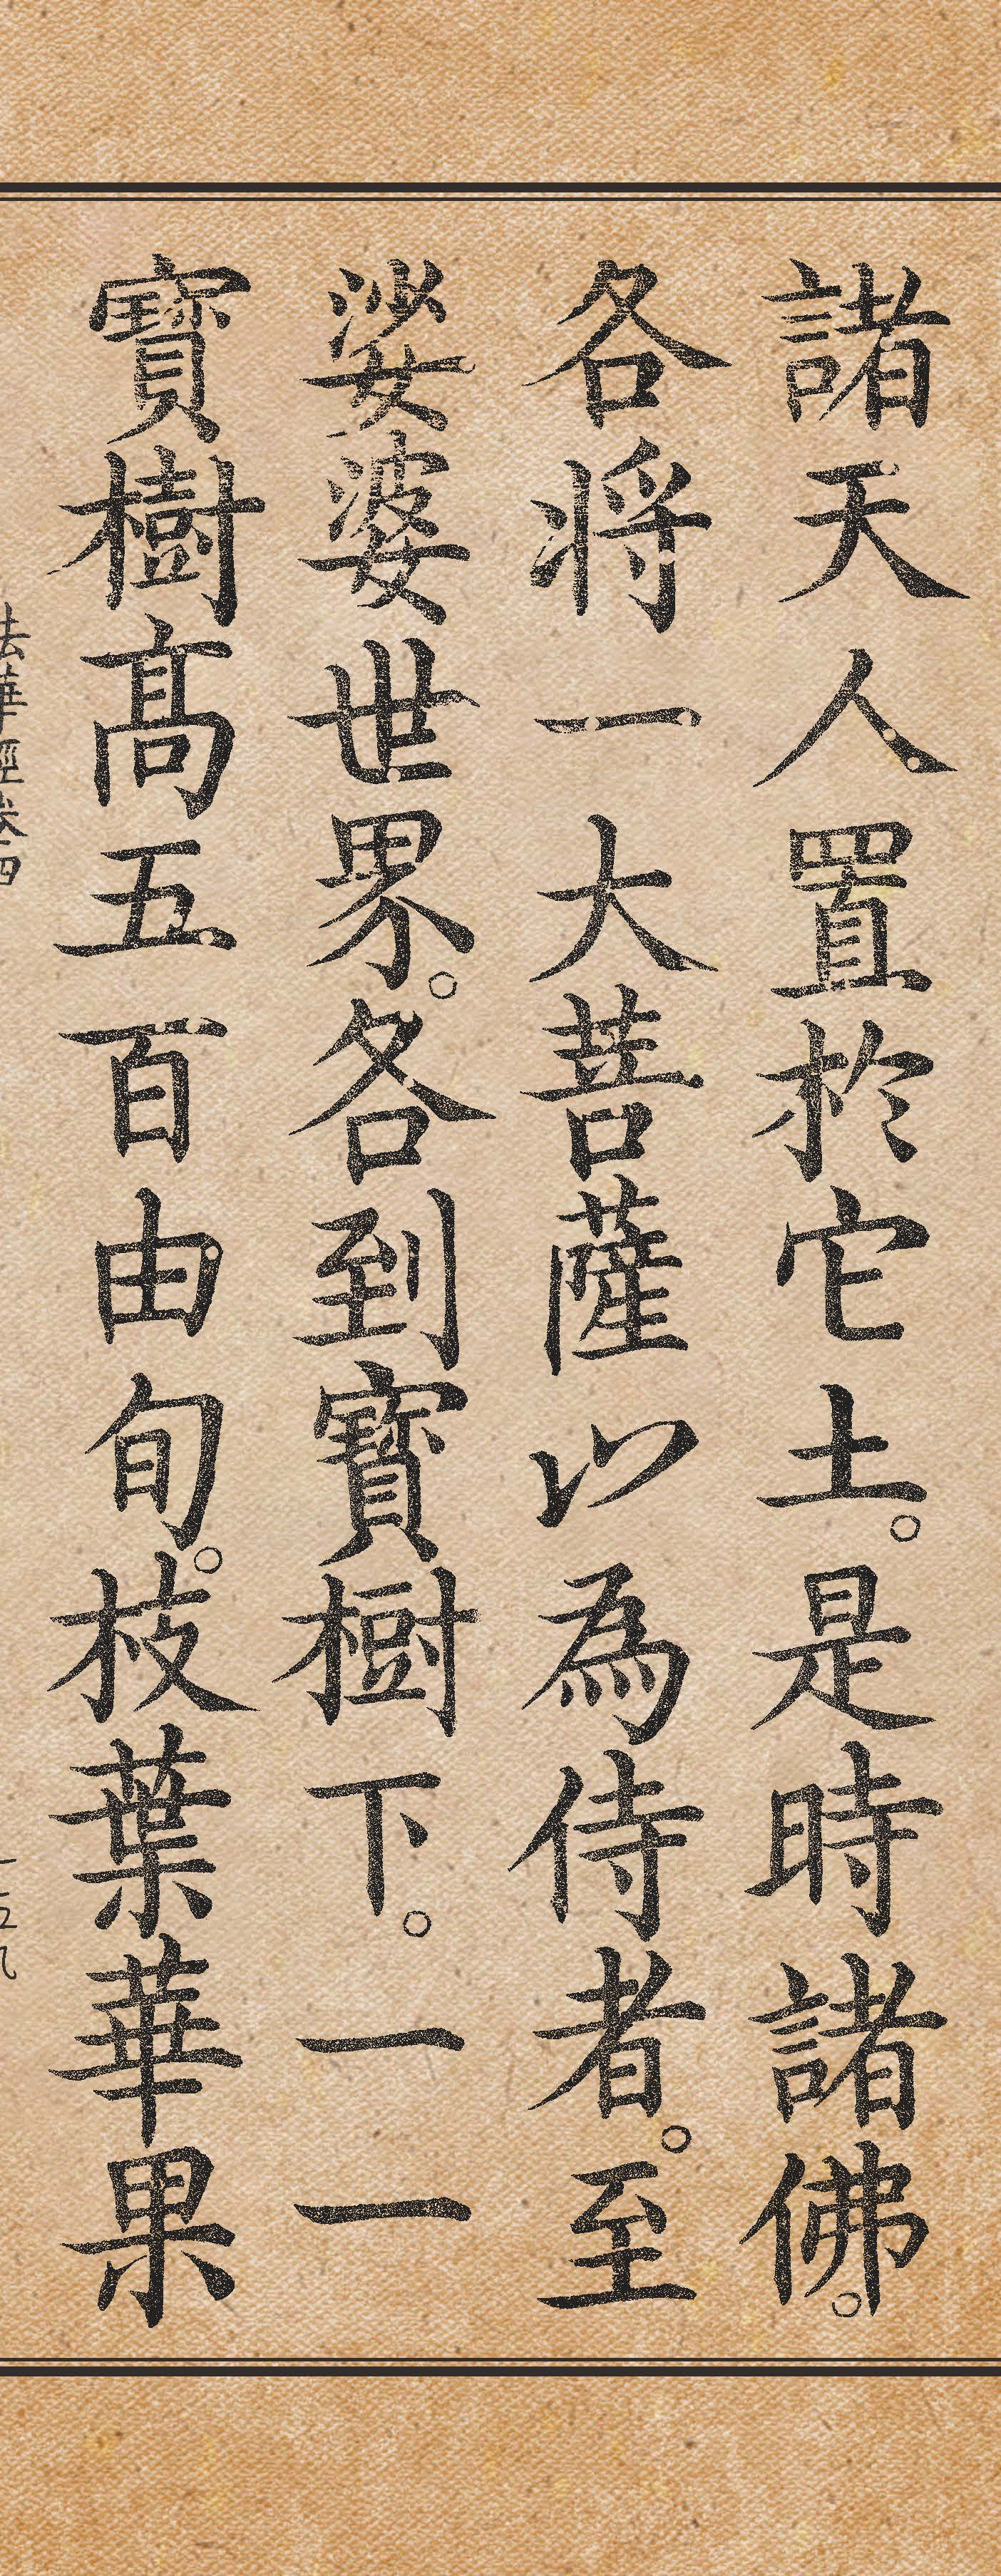 諸天人置於它土。是時諸佛。
各将一大菩薩以為侍者。至
娑婆世界。各到寶樹下。一一
寶樹高五百由旬。枝葉華果
法華經卷四